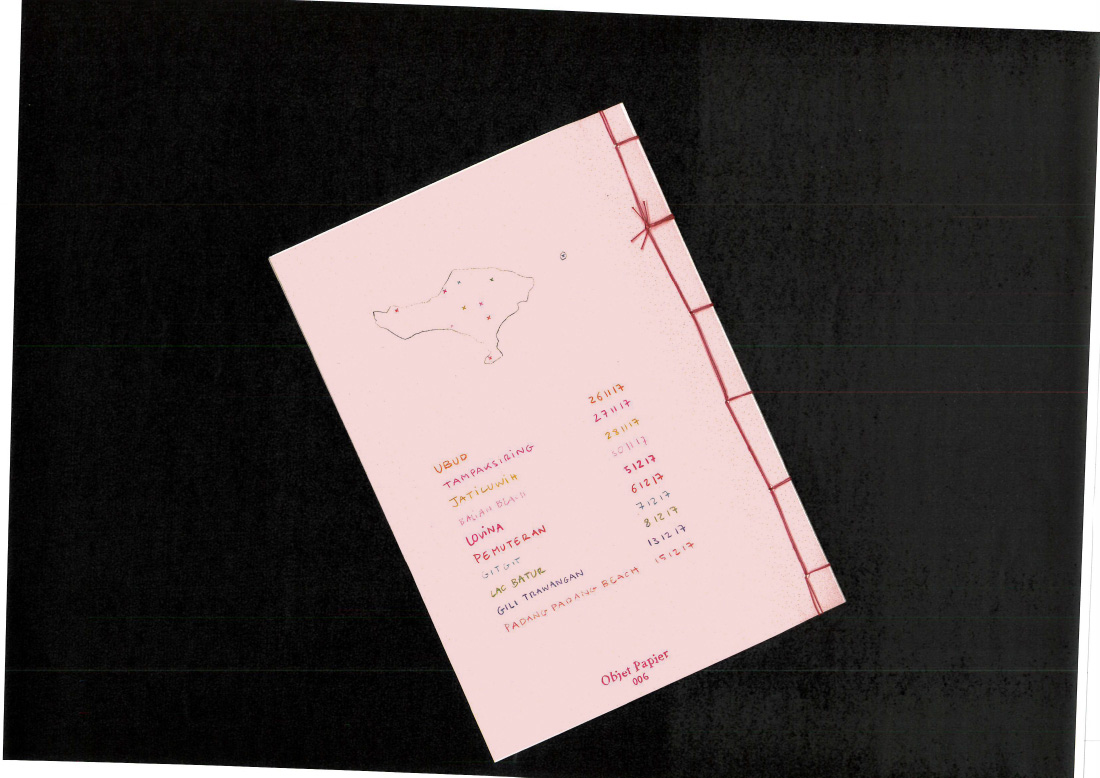 UBUD 26 11 17
TAMPAKSIRING 27 11 17
JATILUWIH 28 11 17
BALIAN BEACH 30 11 17
LOVINA 5 12 17
PEMUTERAN 6 12 17
GITGIT 7 12 17
LAC BATUR 8 12 17
GILI TRAWANGAN 13 12 17
PADANG PADANG BEACH 15 12 17
Objet Papier
006